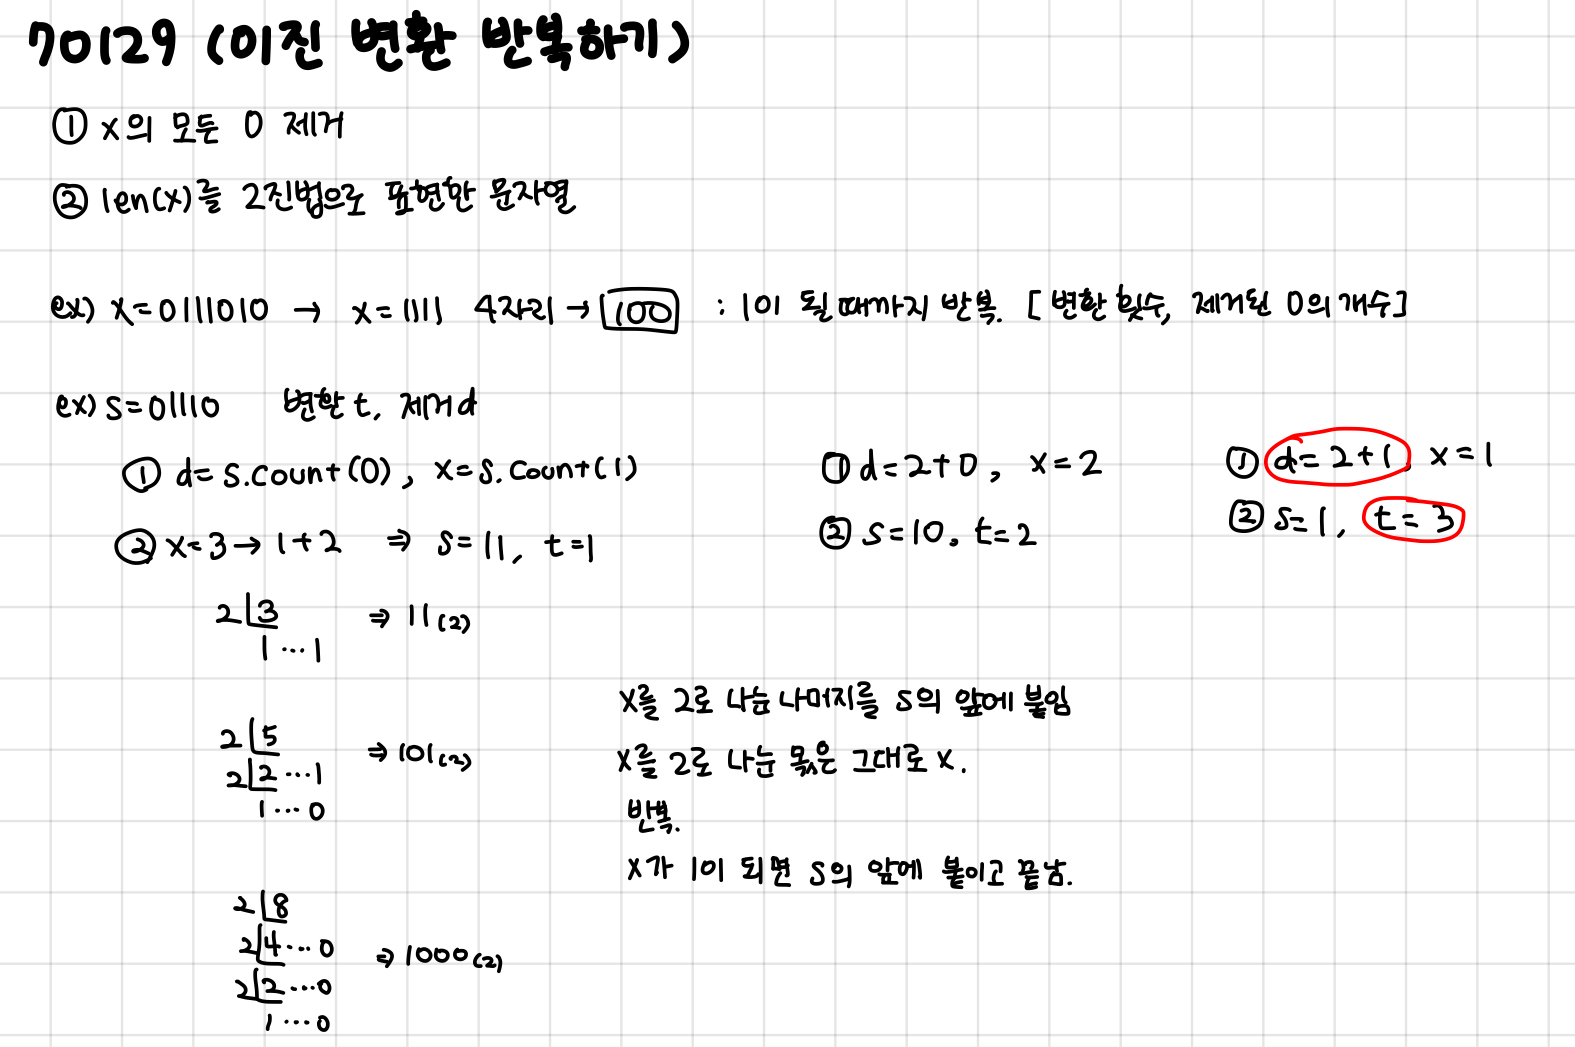 70129 (이진 변환 반복하기)
① x의 모든 0 제거
② len(x)를 2진법으로 표현한 문자열
ex) x=0111010 → x=1111 4자리 → 100 : 1이 될 때까지 반복. [변환 횟수, 제거된 0의 개수]
ex) s=01110 변환 t, 제거 d
① d=s.count(0), x=s.count(1)
② x=3 → 1+2 ⇒ s=11, t=1
① d=2+0, x=2
② s=10, t=2
① d=2+1, x=1
② s=1, t=3
2 3 ⇒ 11(2)
1 ... 1
2 5 ⇒ 101(2)
2 2 ... 1
1 ... 0
2 8
2 4 ... 0 ⇒ 1000(2)
2 2 ... 0
1 ... 0
x를 2로 나눈 나머지를 s의 앞에 붙임
x를 2로 나눈 몫은 그대로 x.
반복.
x가 1이 되면 s의 앞에 붙이고 끝남.